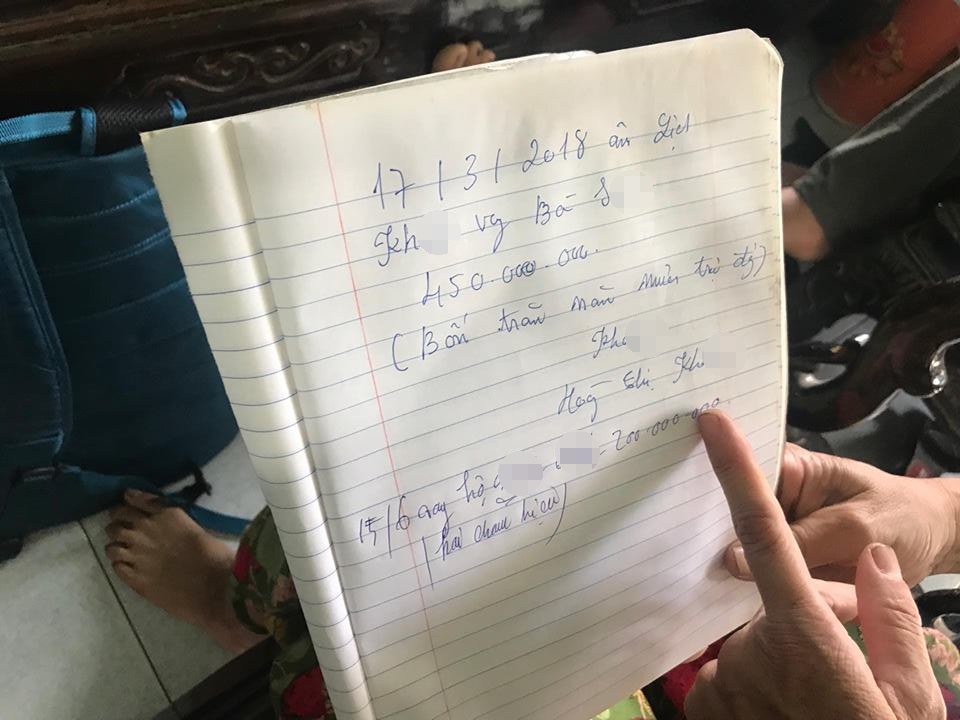 17/3/2018 âm Lịch
Kh vg Bà S
450.000.000.
(Bốn trăm năm mươi trệ đg)
Kh
Hog Thị Kh
15/6 vay hộ = 200.000.000.
(hai trăm triệu)